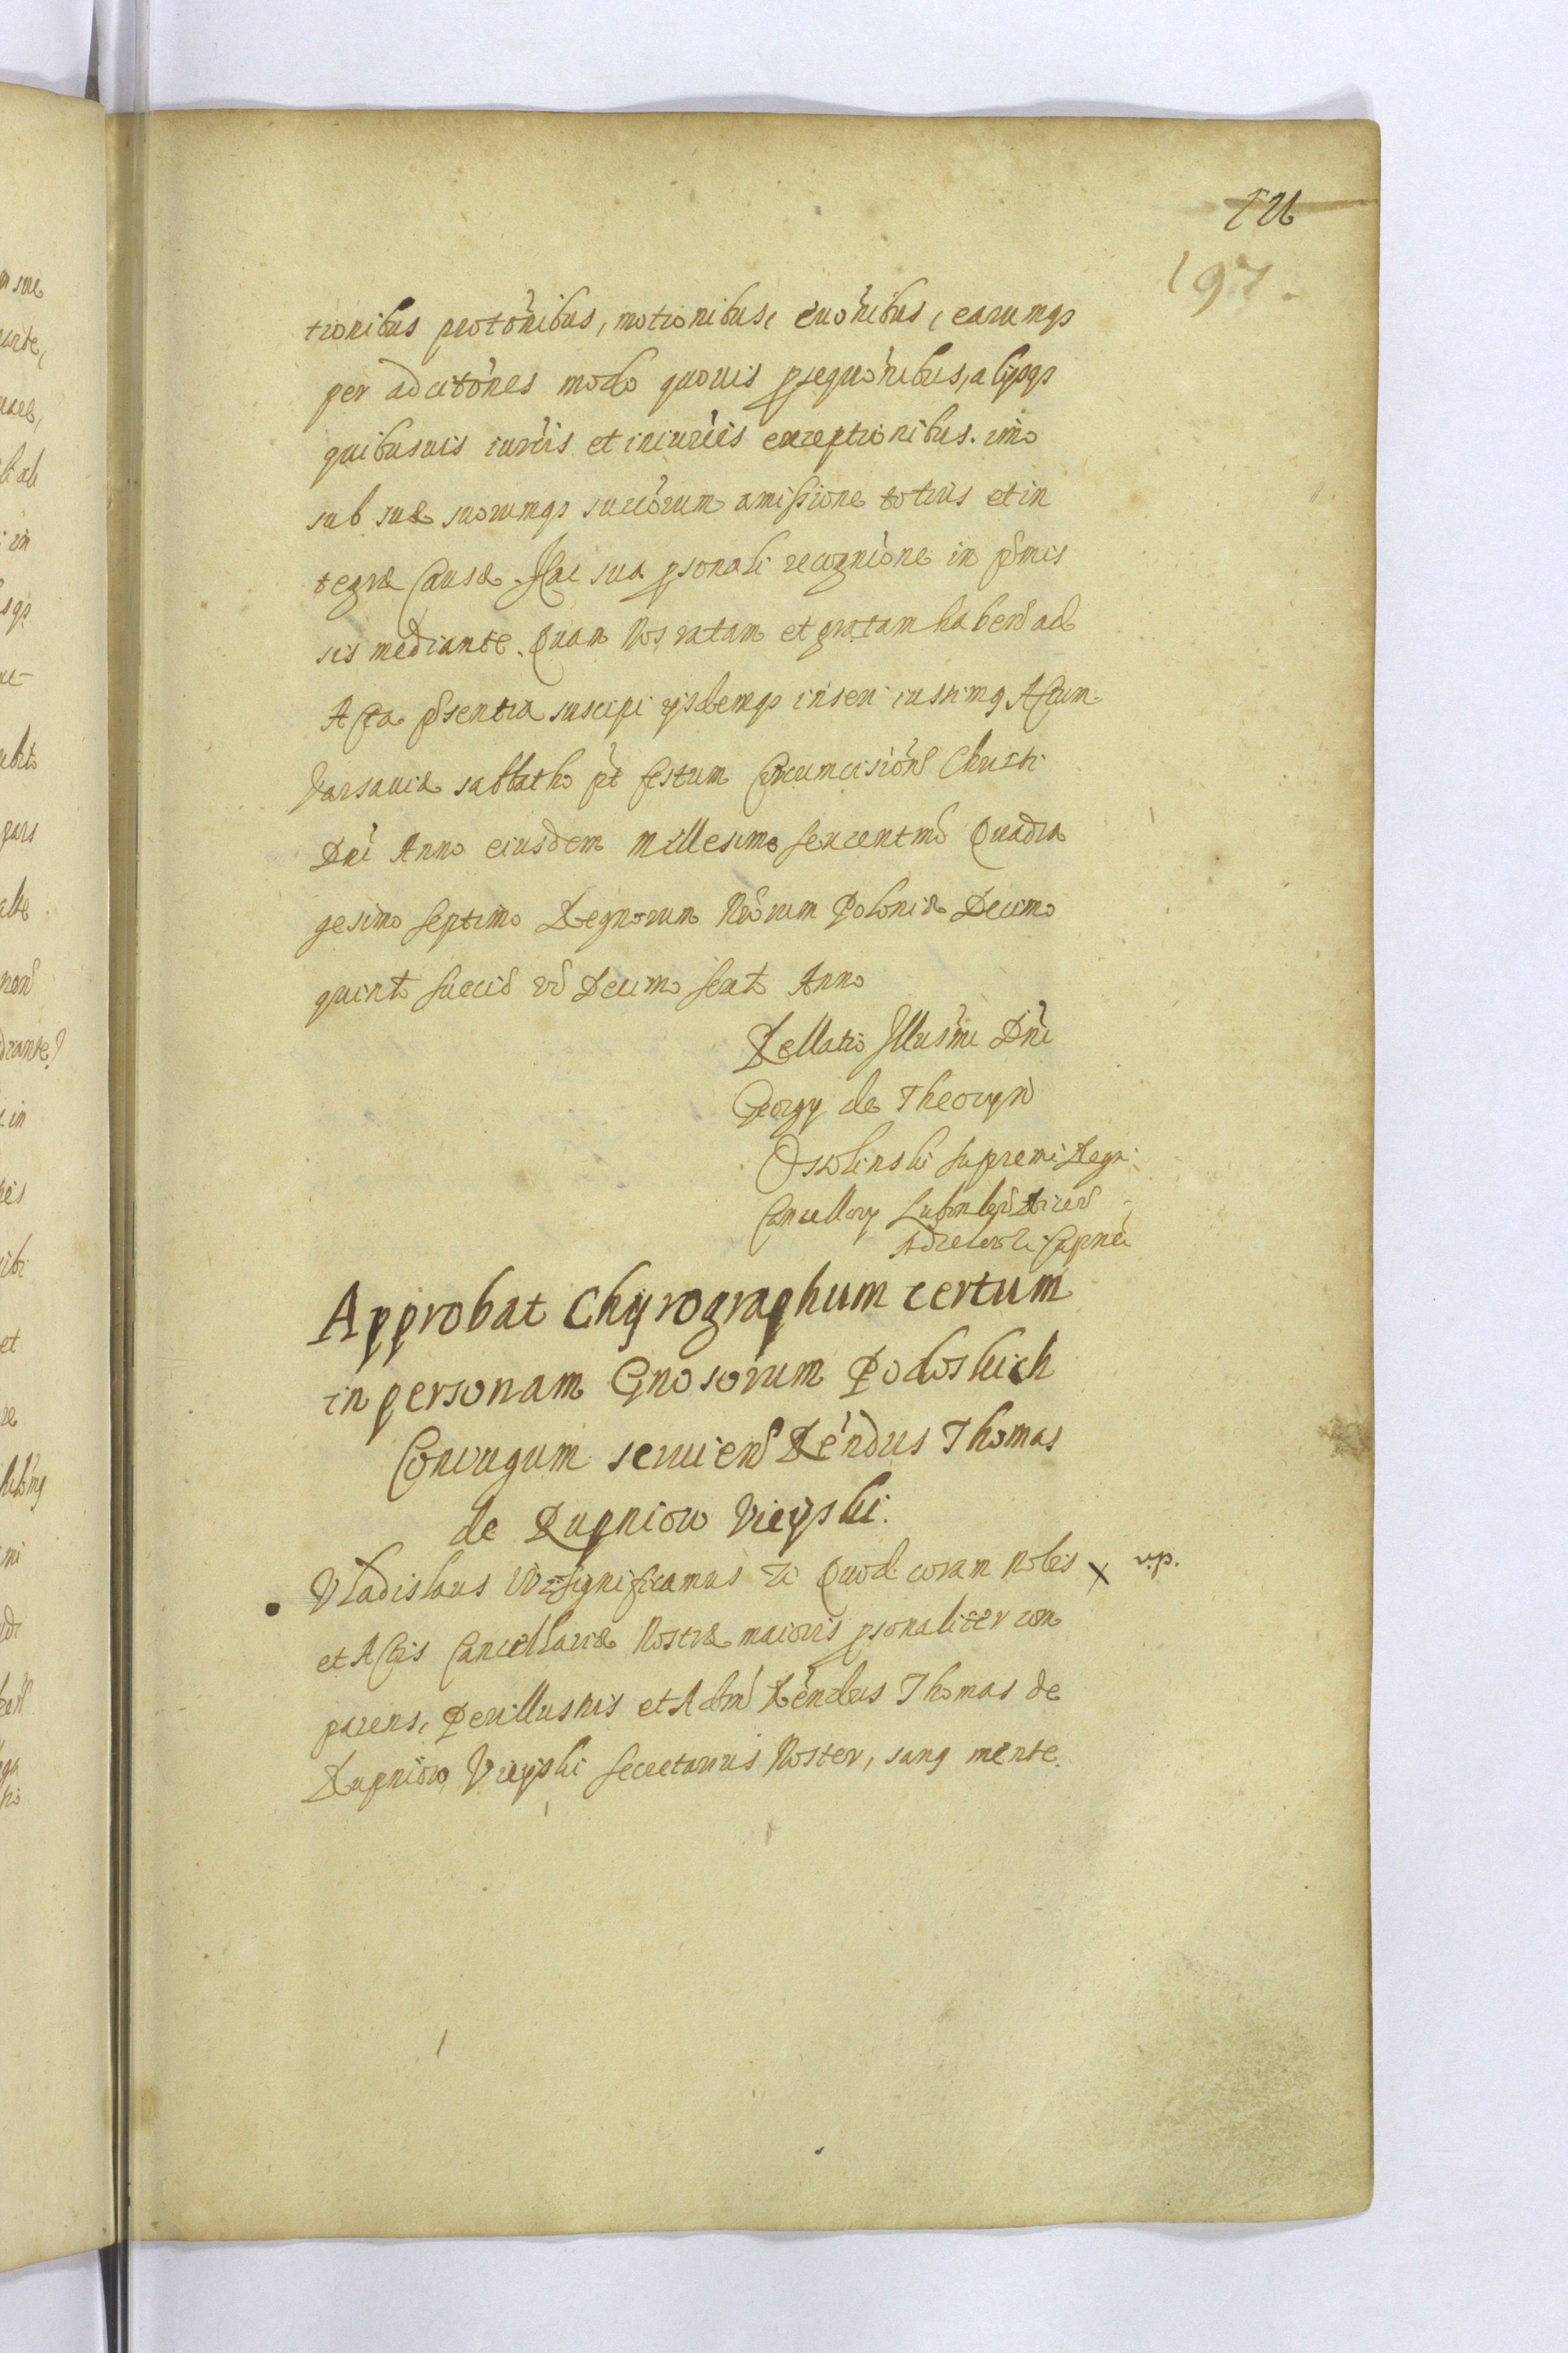 197.
tionibus protōnibus, motionibus, evōnibus, earumqȝ
per adcitōnes modo quovis psequōnibus, alijsqȝ
quibusvis iuris et iniuriis exceptionibus. imo
sub suæ suorumqȝ succōrum amissione totius et in
tegræ Causæ. Hac sua psonali recognīone in pmis
sis mediante. Quam Nos ratam et gratam habend ad
Acta psentia suscipi ijsdemqȝ inseri iussimq Actum
Varsaviæ sabbatho pt festum Circumcisiōnis Christi
Dni Anno eiusdem Millesimo sexcentmo Quadra
gesimo septimo Regnorum Nrorum Poloniæ Decimo
quinto Sueciæ vo Decimo sexto Anno
Rellatio Illusmi Dni
Georgy de Theczyn
Ossolinski supremi Regni
Cancellary
Approbat Chyrographum certum
in personam Gnosorum Podoskich
Coniugum servien Rendus Thomas
de Rupniow Vieyski.
Vladislaus IV significamus &c Quod coram Nobis x v.p.
et Actis Cancellariæ Nostræ maioris psonaliter com
parens, Perillustris et Adm Rendus Thomas de
Rupniow Vieyski Secretarius Noster, sanq mente